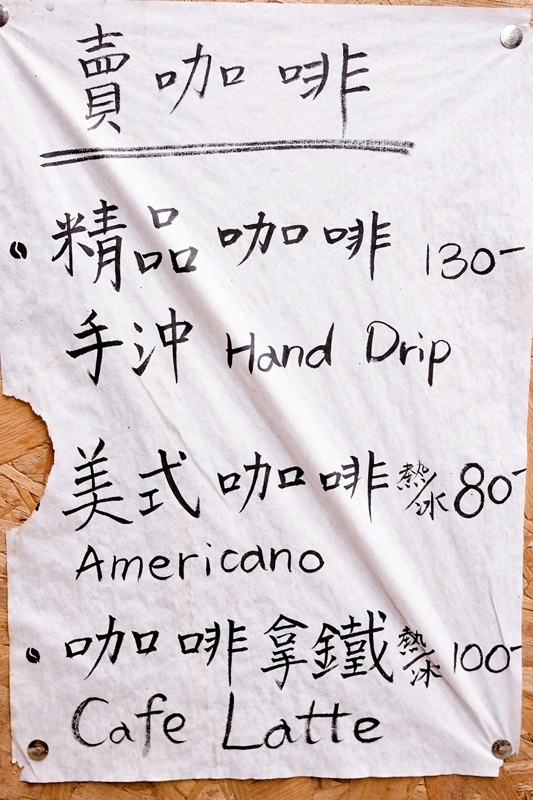 賣咖啡
精品咖啡 130-
手沖 Hand Drip
美式咖啡 熱/冰 80-
Americano
咖啡拿鐵 熱/冰 100-
Cafe Latte